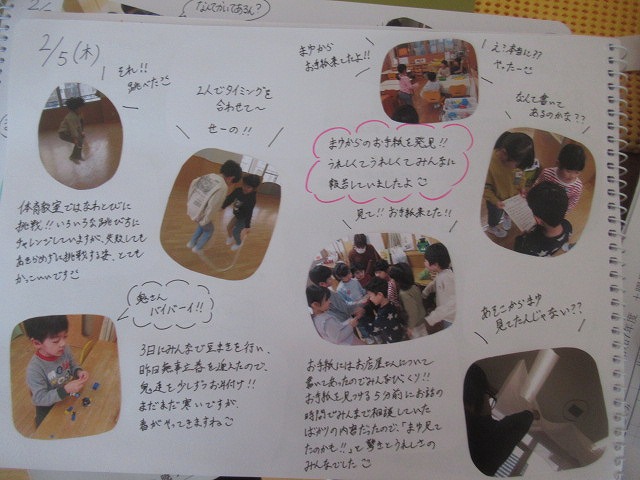 なんてかいてあるん？
2/5(木)
それ!!
跳べた
2人でタイミングを
合わせて〜
せーの!!
体育教室ではなわとびに
挑戦!! いろいろな跳び方に
チャレンジしていますが、失敗しても
あきらめずに挑戦する姿、とても
かっこいいです
鬼さん
バイバーイ!!
3日にみんなで豆まきを行い、
昨日無事立春を迎えたので、
鬼達を少しずつお片付け!!
まだまだ寒いですが、
春がやってきますね
まゆから
お手紙来たよ!!
え？本当に??
やったー
なんて書いて
あるのかな??
まゆからのお手紙を発見!!
うれしくてうれしくてみんなに
報告していましたよ
見て!! お手紙来てた!!
あそこからまゆ
見てたんじゃない??
お手紙にはお店屋さんについて
書いてあったのでみんなびっくり!!
お手紙を見つける5分前にお話の
時間でみんなで相談していた
ばかりの内容だったので、「まゆ見て
たのかも!!」と驚きとうれしさの
みんなでした